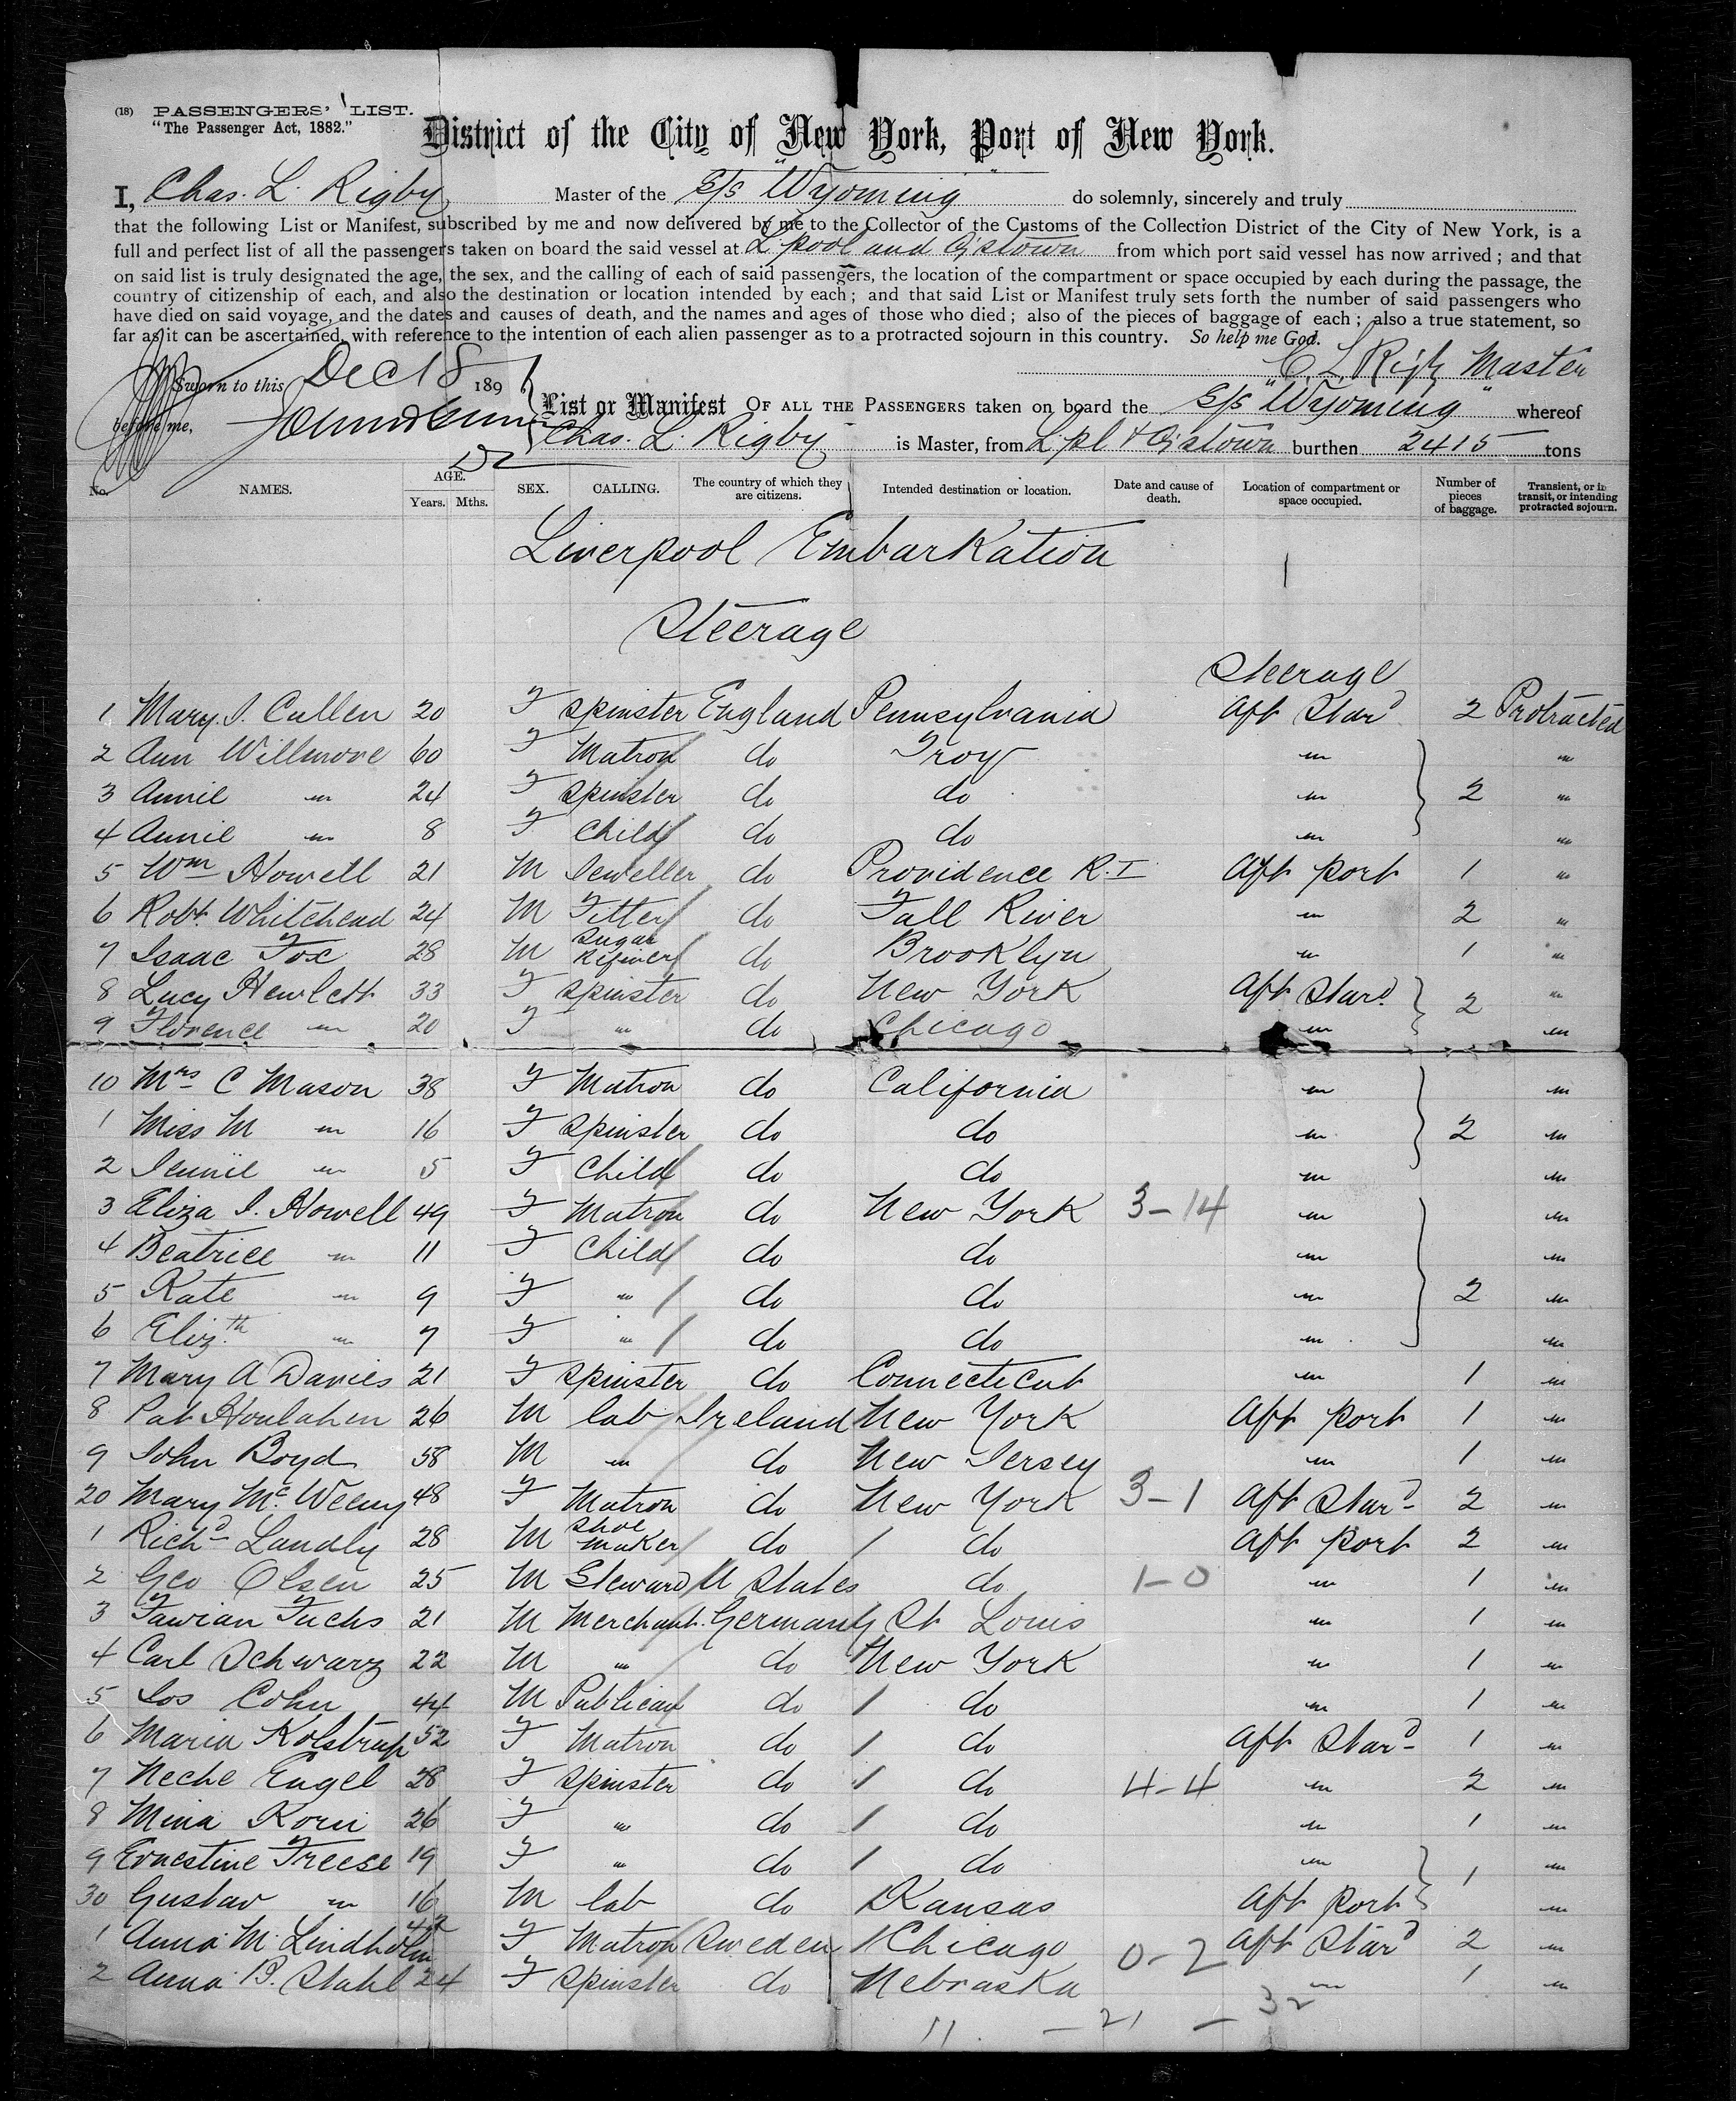 (18) PASSENGERS' LIST.
"The Passenger Act, 1882."
District of the City of New York, Port of New York.
I, Chas. L. Rigby Master of the S/S "Wyoming" do solemnly, sincerely and truly
that the following List or Manifest, subscribed by me and now delivered by me to the Collector of the Customs of the Collection District of the City of New York, is a
full and perfect list of all the passengers taken on board the said vessel at L'pool and Q'stown from which port said vessel has now arrived; and that
on said list is truly designated the age, the sex, and the calling of each of said passengers, the location of the compartment or space occupied by each during the passage, the
country of citizenship of each, and also the destination or location intended by each; and that said List or Manifest truly sets forth the number of said passengers who
have died on said voyage, and the dates and causes of death, and the names and ages of those who died; also of the pieces of baggage of each; also a true statement, so
far as it can be ascertained, with reference to the intention of each alien passenger as to a protracted sojourn in this country. So help me God.
C. L. Rigby Master
Sworn to this Dec 18 189
before me,
List or Manifest OF ALL THE PASSENGERS taken on board the S/S "Wyoming" whereof
Chas. L. Rigby is Master, from L'pl & Q'stown burthen 2415 tons
No. NAMES. AGE. Years. Mths. SEX. CALLING. The country of which they are citizens. Intended destination or location. Date and cause of death. Location of compartment or space occupied. Number of pieces of baggage. Transient, or in transit, or intending protracted sojourn.
Liverpool Embarkation
Steerage
Steerage
1 Mary. J. Cullen 20 F Spinster England Pennsylvania Aft Star'd 2 Protracted
2 Ann Willmore 60 F Matron do Troy " "
3 Annie " 24 F Spinster do do " 2 "
4 Annie " 8 F Child do do " "
5 Wm Howell 21 M Jeweller do Providence R.I Aft port 1 "
6 Robt. Whitehead 24 M Fitter do Fall River " 2 "
7 Isaac Fox 28 M Sugar Refiner do Brooklyn " 1 "
8 Lucy Hewlett 33 F Spinster do New York Aft Star'd 2 "
9 Florence " 20 F " do Chicago " "
10 Mrs C Mason 38 F Matron do California " "
1 Miss M " 16 F Spinster do do " 2 "
2 Jennie " 5 F Child do do " "
3 Eliza J. Howell 49 F Matron do New York 3-14 " "
4 Beatrice " 11 F Child do do " "
5 Kate " 9 F " do do " 2 "
6 Eliz.th " 7 F " do do " "
7 Mary A Davies 21 F Spinster do Connecticut " 1 "
8 Pat Houlahen 26 M lab Ireland New York Aft port 1 "
9 John Boyd 58 M " do New Jersey " 1 "
20 Mary Mc. Weeny 48 F Matron do New York 3-1 Aft Star'd 2 "
1 Rich'd Landly 28 M Shoe maker do do Aft port 2 "
2 Geo Olsen 25 M Steward U States do 1-0 " 1 "
3 Fuchs 21 M Merchant Germany St Louis " 1 "
4 Carl Schwarz 22 M " do New York " 1 "
5 Jos Cohn 44 M Publican do do " 1 "
6 Maria Kolstrup 52 F Matron do do Aft Star'd 1 "
7 Neche Engel 28 F Spinster do do 4-4 " 2 "
8 Mina Korn 26 F " do do " 1 "
9 Ernestine Freese 19 F " do do " 1 "
30 Gustav " 16 M lab do Kansas Aft port "
1 Anna M. Lindholm 42 F Matron Sweden Chicago 0-2 Aft Star'd 2 "
2 Anna B. Stahl 24 F Spinster do Nebraska " 1 "
11 - 21 - 32